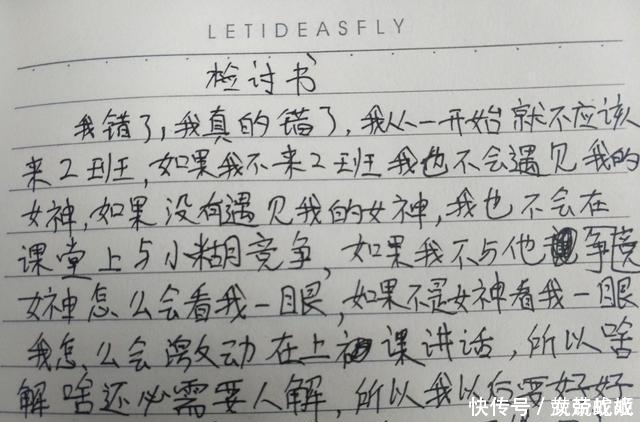 LETIDEASFLY
检讨书
我错了,我真的错了,我从一开始就不应该
来2班,如果我不来2班我也不会遇见我的
女神,如果没有遇见我的女神,我也不会在
课堂上与小糊竞争,如果我不与他争
女神怎么会看我一眼,如果不是女神看我一眼
我怎么会激动在上课讲话,所以啥
解啥还必需要人解,所以我以后要好好
快传号/